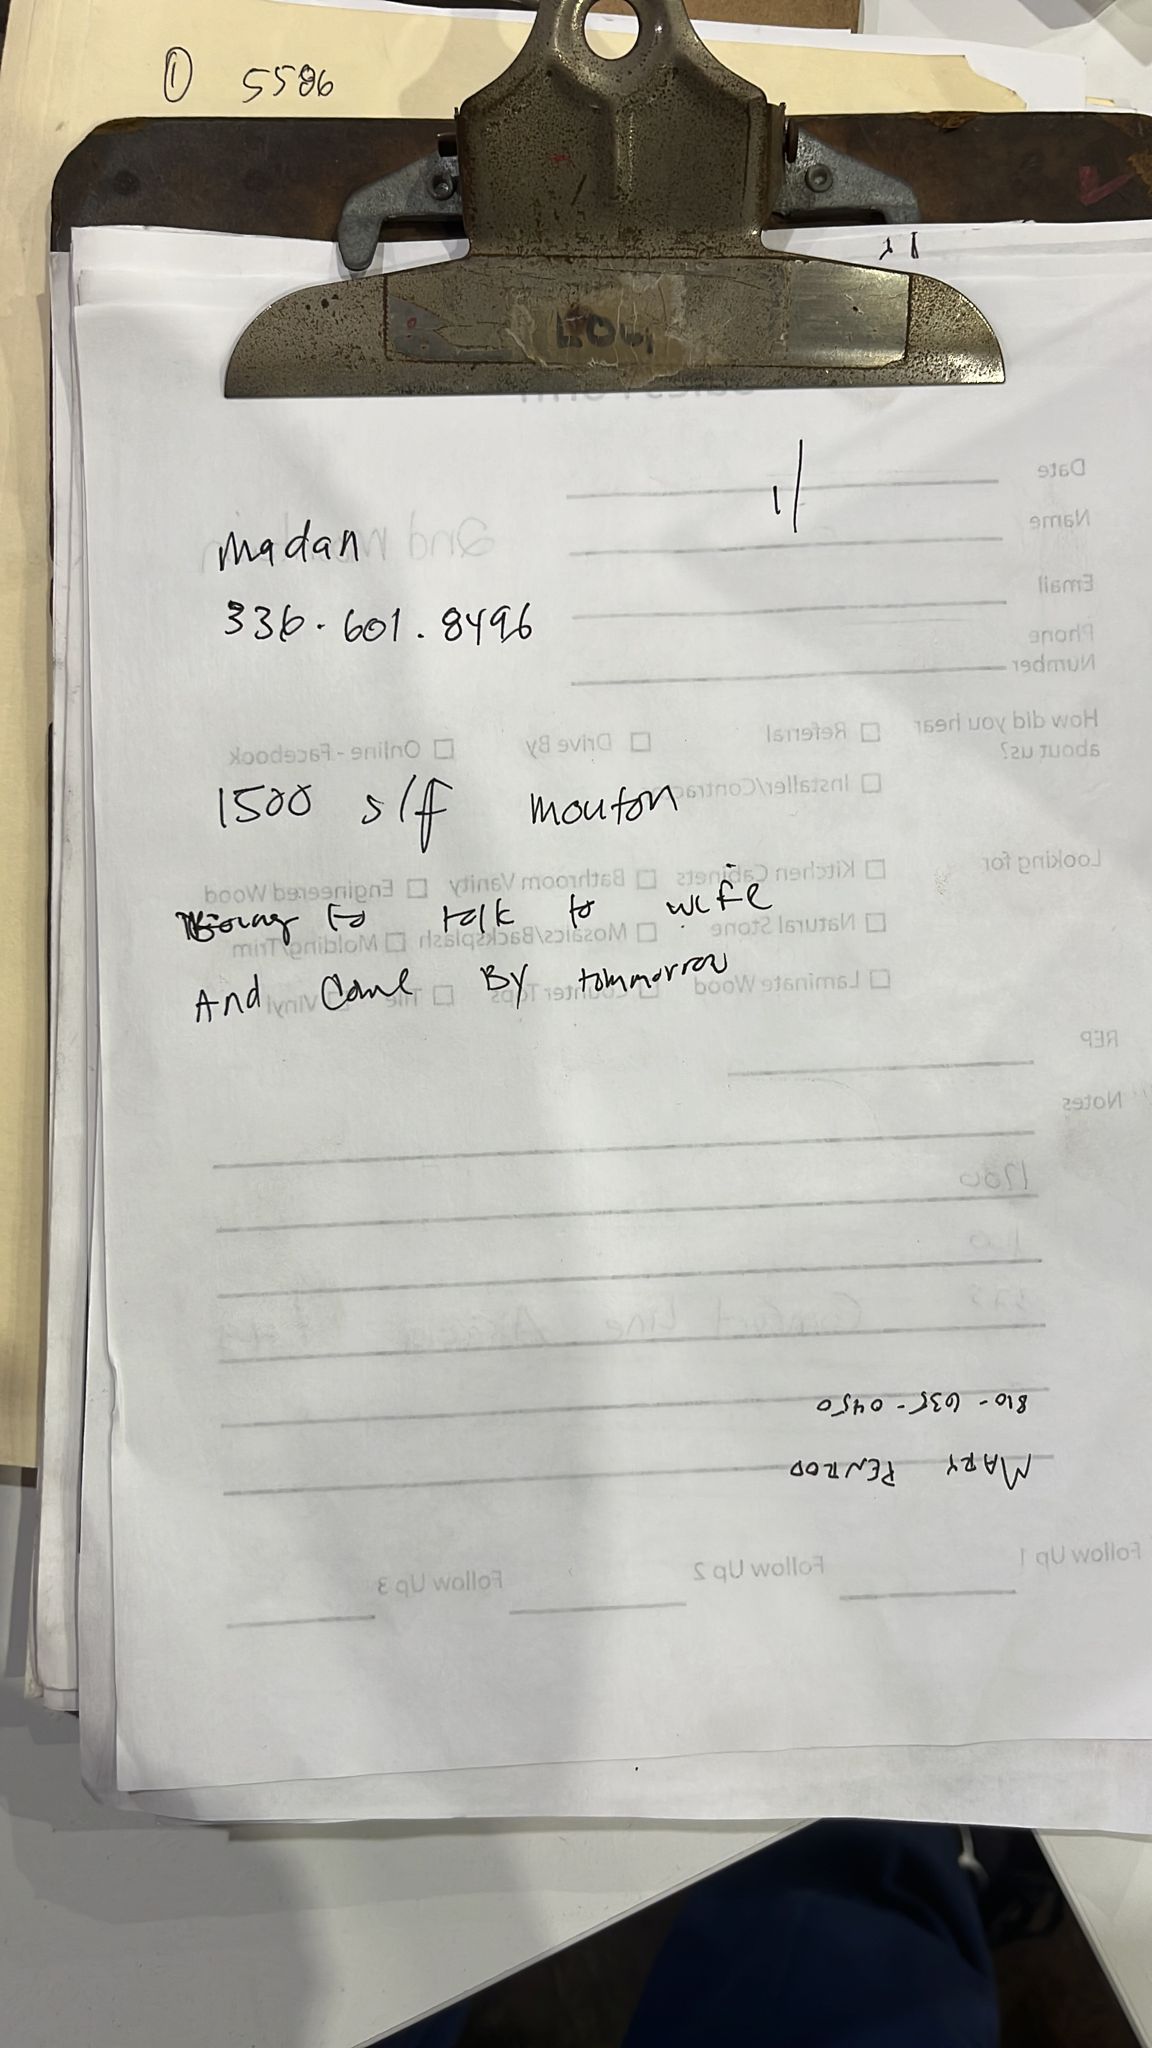 ① 5586
Madan
336. 601. 8496
1500 s/f mouton
Going to talk to wife
And Come By tommorrow
Sales Form
Date
Name
Email
Phone
Number
How did you hear
about us?
Referral
Drive By
Online - Facebook
Installer/Contrac
Looking for
Kitchen Cabinets
Bathroom Vanity
Engineered Wood
Natural Stone
Mosaics/Backsplash
Molding/Trim
Laminate Wood
Counter Tops
Tile
Vinyl
REP
Notes
1700
Comfort Line
810-635-0450
MARY PENROD
Follow Up 1
Follow Up 2
Follow Up 3